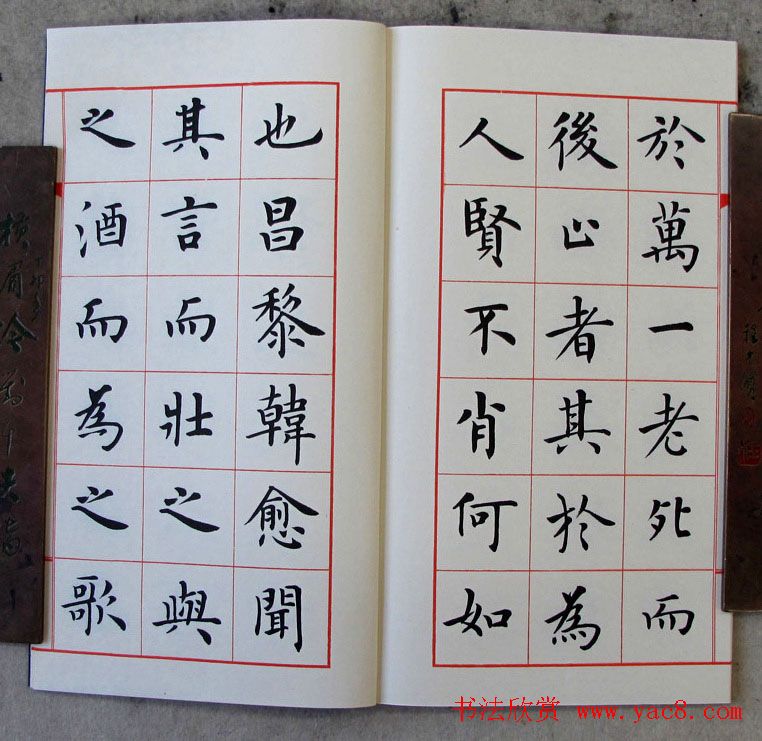 於萬一老死而
後止者其於為
人賢不肖何如
也昌黎韓愈聞
其言而壯之與
之酒而為之歌
横眉冷
书法欣赏 www.yac8.com